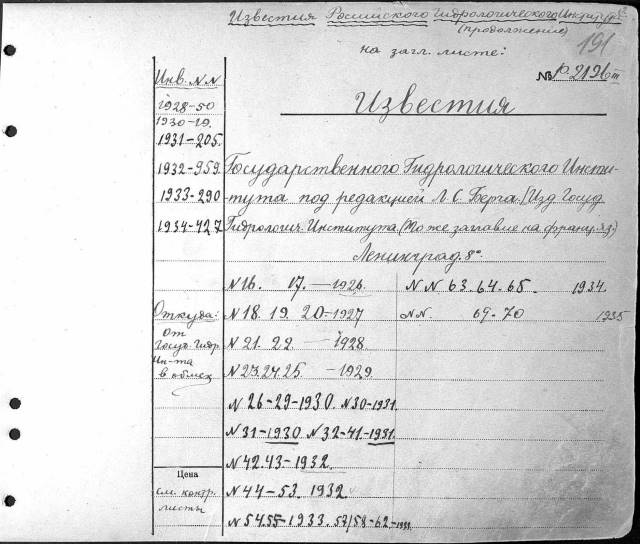 Известия Российского Гидрологического Института
(продолжение)
на загл. листе:
191
№ 10.2196 III
Инв. NN
Известия
1928-50
1930-19.
1931-205.
1932-959.
1933-290
1934-427
Государственного Гидрологического Инсти-
тута под редакцией Л. С. Берга. (Изд. Госуд
Гидрологич. Института. (То же заглавие на франц. яз.)
Ленинград. 8°.
N 16. 17. – 1926.
NN 63. 64. 65. 1934.
Откуда:
от
Госуд. Гидр
Ин-та
в обмен
N 18. 19. 20 – 1927
NN. 69-70 1935
N 21. 22 – 1928.
N 23. 24. 25. – 1929.
N 26-29-1930. N 30-1931.
N 31-1930 N 32-41-1931.
N 42. 43 – 1932.
Цена
см. контр.
листы
N 44-53. 1932.
N 54. 55-1933. 57/58-62-1933